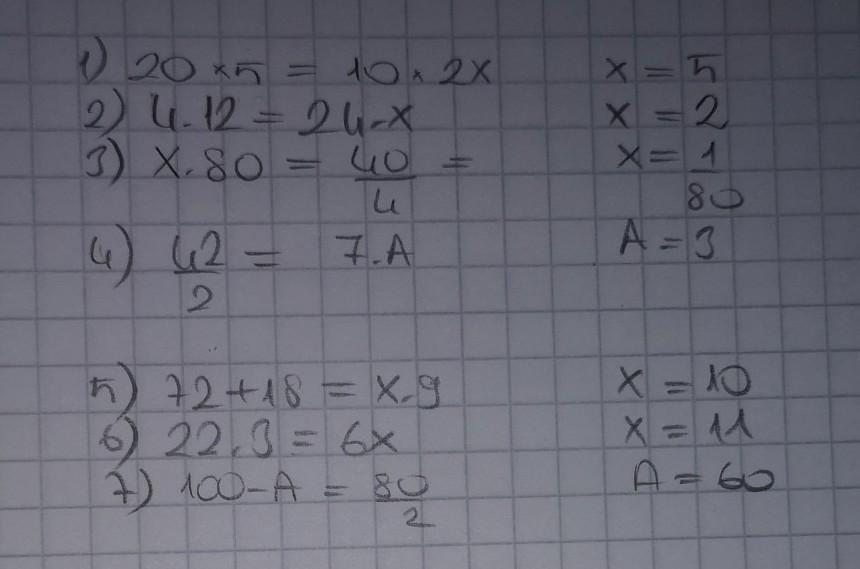 1) 20 × 5 = 10 × 2x x = 5
2) 4 . 12 = 24 . x x = 2
3) x . 80 = 40/4 = x = 1/80
4) 42/2 = 7 . A A = 3
5) 72 + 18 = x . 9 x = 10
6) 22 . 3 = 6x x = 11
7) 100 - A = 80/2 A = 60